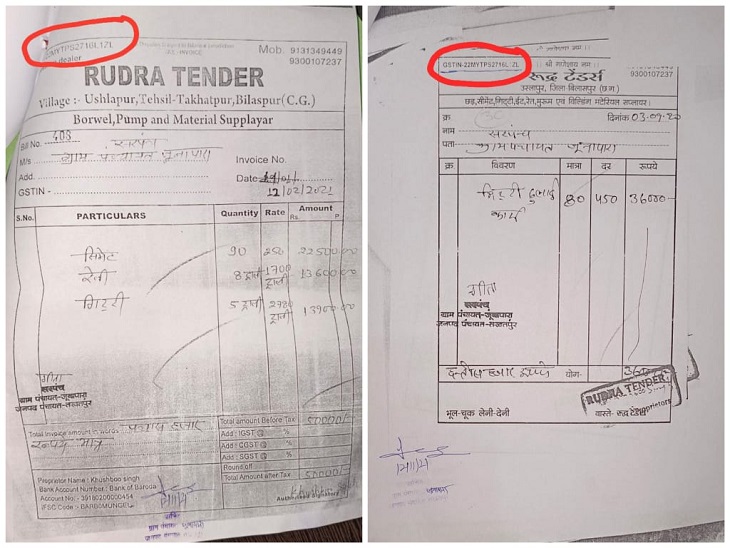 22MYTPS2716L1ZL
dealer
Mob. 9131349449
9300107237
RUDRA TENDER
Village :- Ushlapur,Tehsil-Takhatpur,Bilaspur(C.G.)
Borwel,Pump and Material Supplayar
Bill No. 408
M/s सरपंच
ग्राम पंचायत जूनापारा
Invoice No.
Add.
Date
GSTIN - 12/02/2021
S.No. PARTICULARS Quantity Rate Amount
Rs. P.
सिमेंट 90 250 22500.00
रेती 8 ट्राली 1700 ट्राली 13600.00
गिट्टी 5 ट्राली 2780 ट्राली 13900.00
सरपंच
ग्राम पंचायत-जूनापारा
जनपद पंचायत-तखतपुर
Total invoice amount in words पचास हजार
रूपये मात्र
Total amount Before Tax 50000/-
Add : IGST @ %
Add : CGST @ %
Add : SGST @ %
Round off
Total Amount after Tax 50000/-
Proprietor Name : Khushboo singh
Bank Account Number : Bank of Baroda
Account No - 39180200000454
IFSC Code :- BARBOMUNGEL
सचिव
ग्राम पंचायत जूनापारा
GSTIN-22MYTPS2716L1ZL
।। श्री गणेशाय नमः ।।
9131349449
9300107237
रूद्र ट्रेडर्स
उसलापुर, जिला-बिलासपुर (छ.ग.)
छड़,सीमेंट,गिट्टी,ईंट,रेत,मुरूम एवं बिल्डिंग मटेरियल सप्लायर।
क्र. दिनांक 03-09-20
नाम सरपंच
पता ग्राम पंचायत जूनापारा
क्र विवरण मात्रा दर रूपये
मिट्टी ढुलाई 80 450 36000-
कार्य
गीता
सरपंच
ग्राम पंचायत-जूनापारा
जनपद पंचायत-तखतपुर
छत्तीस हजार रूपये योग-
RUDRA TENDER
Proprietors
भूल-चूक लेनी-देनी वास्ते- रूद्र ट्रेडर्स